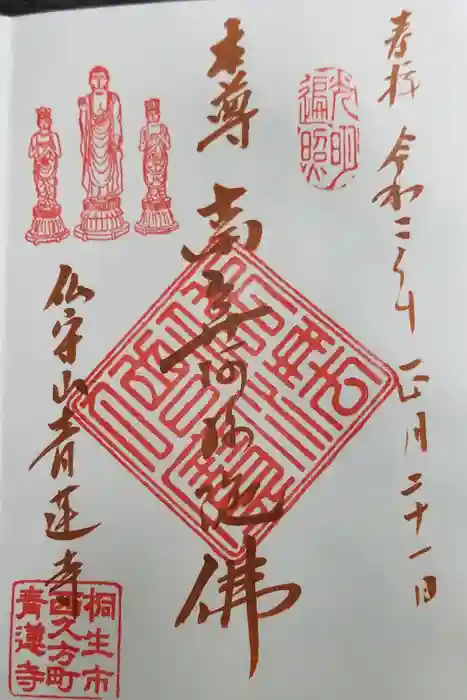 奉拝 令和二年 正月二十一日
光明
遍照
本尊 南無阿弥陀佛
仏守山青蓮寺
桐生市
西久方町
青蓮寺